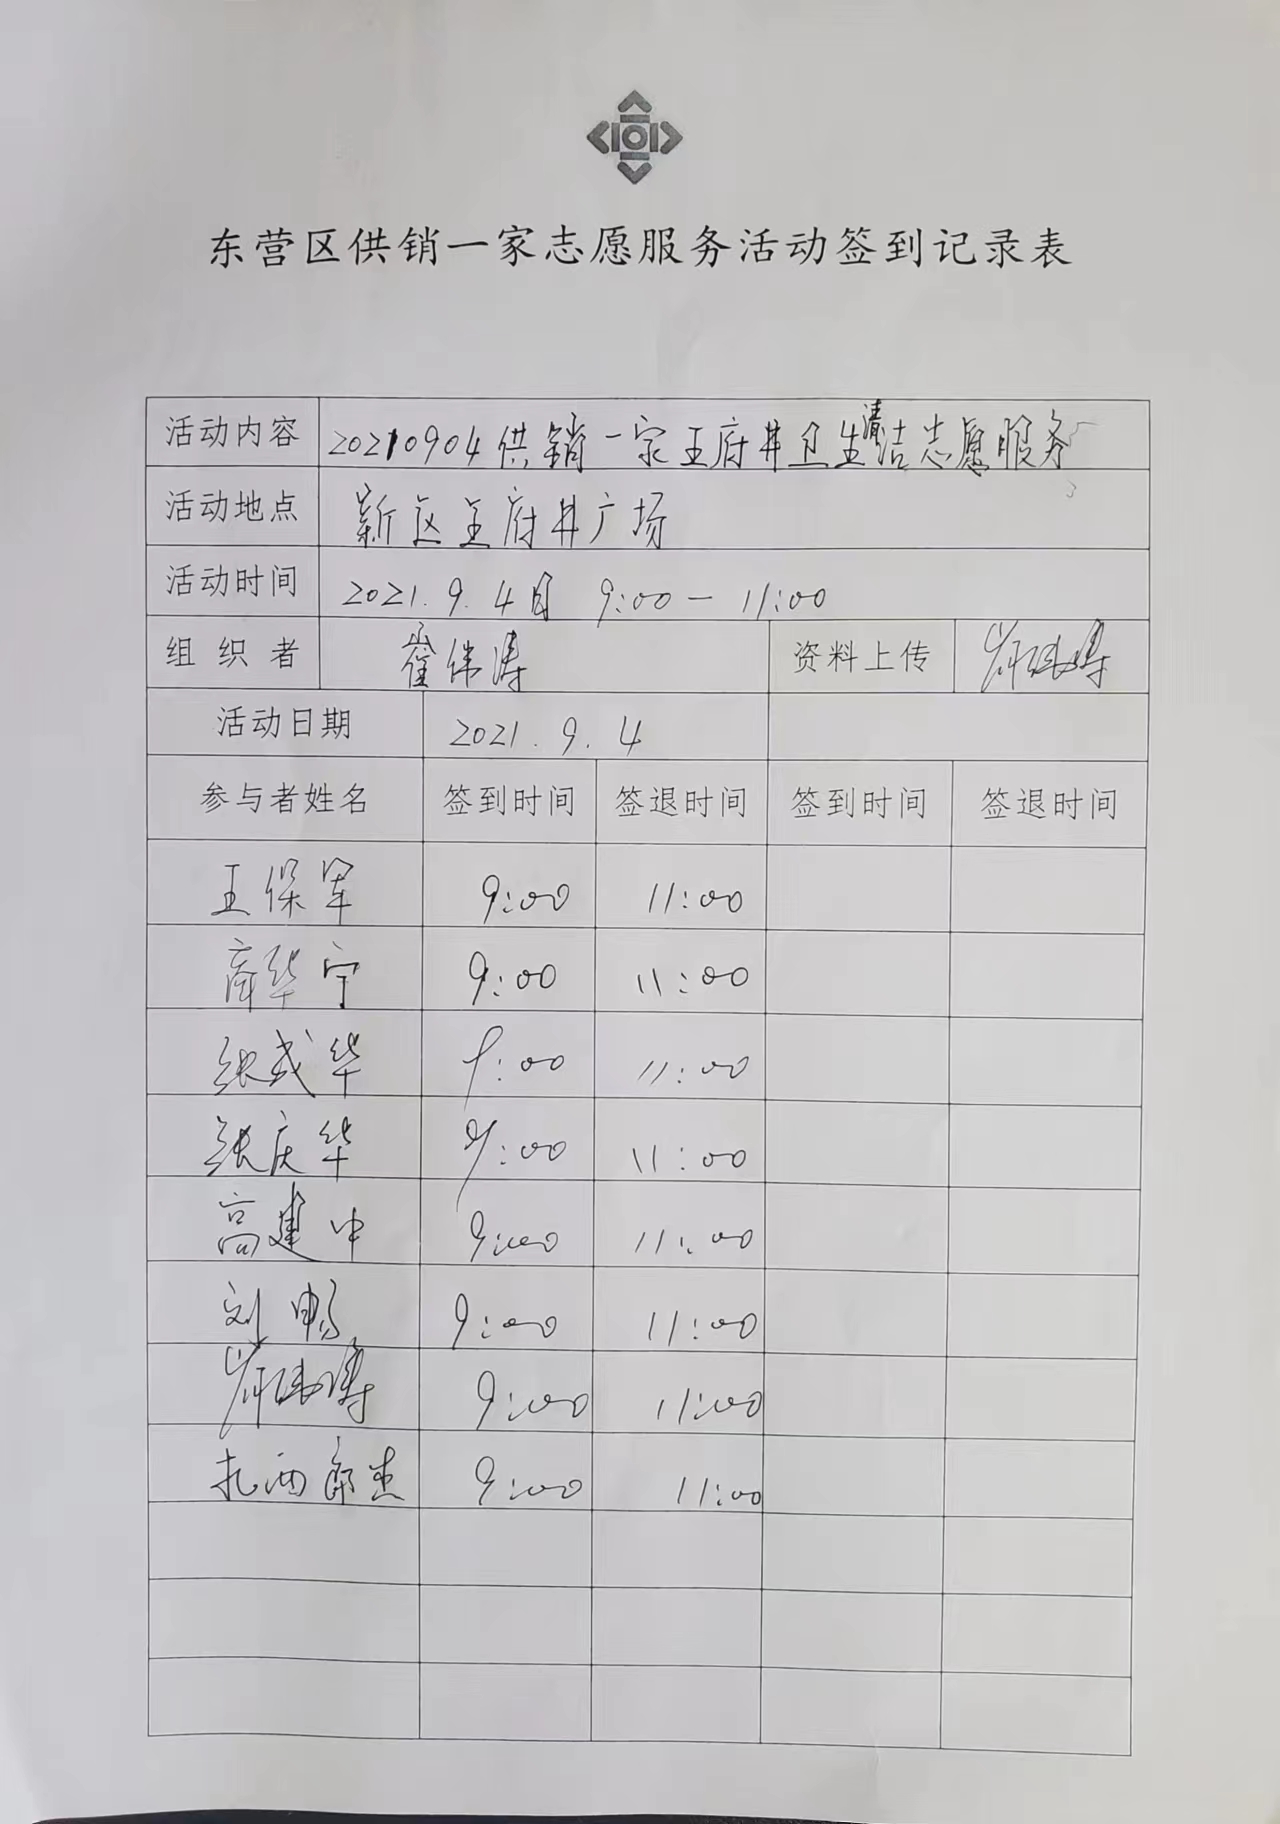 东营区供销一家志愿服务活动签到记录表
活动内容 20210904供销一家王府井卫生清洁志愿服务
活动地点 新区王府井广场
活动时间 2021.9.4日 9:00—11:00
组织者 崔伟涛 资料上传
活动日期 2021.9.4
参与者姓名 签到时间 签退时间 签到时间 签退时间
王保军 9:00 11:00
商华宁 9:00 11:00
张成华 9:00 11:00
张庆华 9:00 11:00
高建中 9:00 11:00
刘畅 9:00 11:00
9:00 11:00
扎西郎杰 9:00 11:00